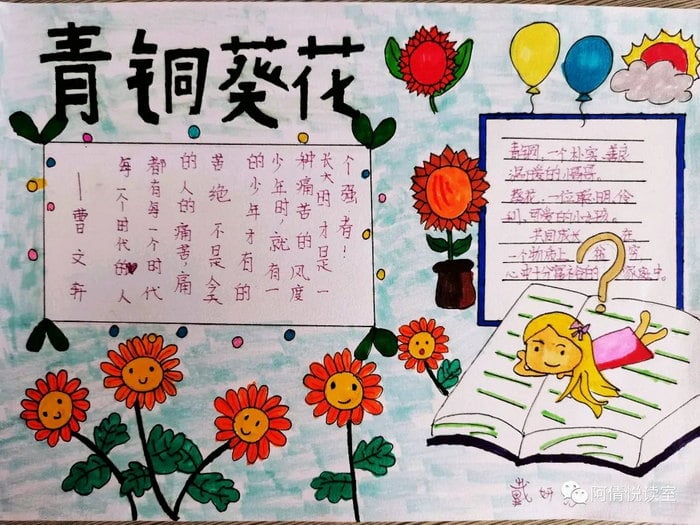 青铜葵花
每一个时代的人
都有每一个时代
的人的痛苦,痛
苦绝不是今天
的少年才有的
少年时,就有一
种痛苦的风度
长大因才是一
个强者!
—曹文
青铜,一个朴实、善良
温暖的小哥哥。
葵花,一位聪明、伶
俐、可爱的小女孩。
共同成长 在
一个物质上 穷
心中十分富裕的 家庭中。
?
戴妍
阿倩悦读室